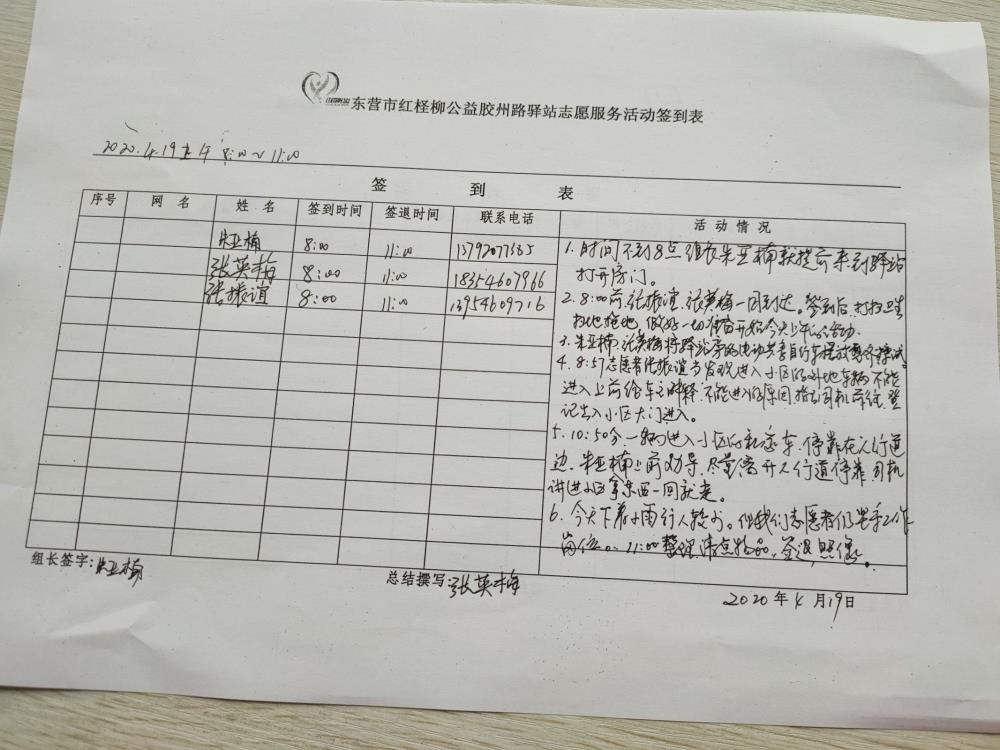 东营市红柽柳公益胶州路驿站志愿服务活动签到表
2020.4.19上午 8:00~11:00
签 到 表
序号 网名 姓名 签到时间 签退时间 联系电话 活动情况
朱亚楠 8:00 11:00
张英梅 8:00 11:00 18354607966
张振谊 8:00 11:00 13954609716
1. 时间不到8点组长朱亚楠就提前来到驿站
打开房门。
2. 8:00前,张振谊,张英梅一同到达。签到后,打扫卫生
扫地拖地,做好一切准备开始今天上午的活动.
3. 朱亚楠,张英梅将驿站旁的电动共享自行车摆放整齐
4. 8:57志愿者张振谊当发现进入小区的外地车辆不能
进入上前给车主解释,不能进入的原因,指引司机前往登
记出入小区大门进入。
5. 10:50分,一辆进入小区的私家车,停靠在人行道
边,朱亚楠上前劝导,尽量离开人行道停靠,司机
讲进小区拿东西一回就走。
6. 今天下着小雨行人较少。但我们志愿者仍坚守工作
岗位。11:00整理清点物品,签退,照像。
组长签字:朱亚楠
总结撰写:张英梅
2020年4月19日